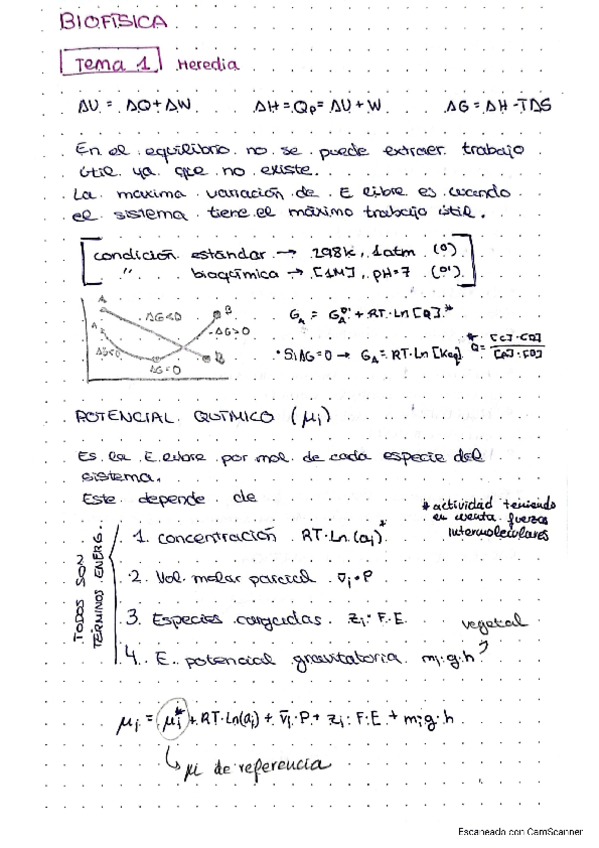 BIOFÍSICA
Tema 1 Heredia
ΔU = ΔQ+ΔW ΔH=Qp=ΔU+W ΔG=ΔH-TΔS
En el equilibrio no se puede extraer trabajo
útil ya que no existe.
La maxima variación de E libre es cuando
el sistema tiene el máximo trabajo útil.
condición estándar → 298K, 1atm (0)
" bioquímica → [1M], pH=7 (0')
A ΔG<0 B
A ΔG>0
ΔG<0 B
ΔG=0
G_A = G_A^0' + RT·Ln[Q]*
• Si ΔG=0 → G_A = RT·Ln[Keq] * Q = [C]·[D] / [A]·[B]
POTENCIAL QUÍMICO (μi)
Es la E libre por mol de cada especie del
sistema.
Este depende de
* actividad teniendo
en cuenta fuerzas
intermoleculares
TODOS SON
TÉRMINOS ENERG.
1. concentración RT·Ln(ai)*
2. Vol. molar parcial v̄i·P
3. Especies cargadas zi·F·E
4. E. potencial gravitatoria mi·g·h
vegetal
μi = μi* + RT·Ln(ai) + v̄i·P + zi·F·E + mi·g·h
↳ μi de referencia
Escaneado con CamScanner